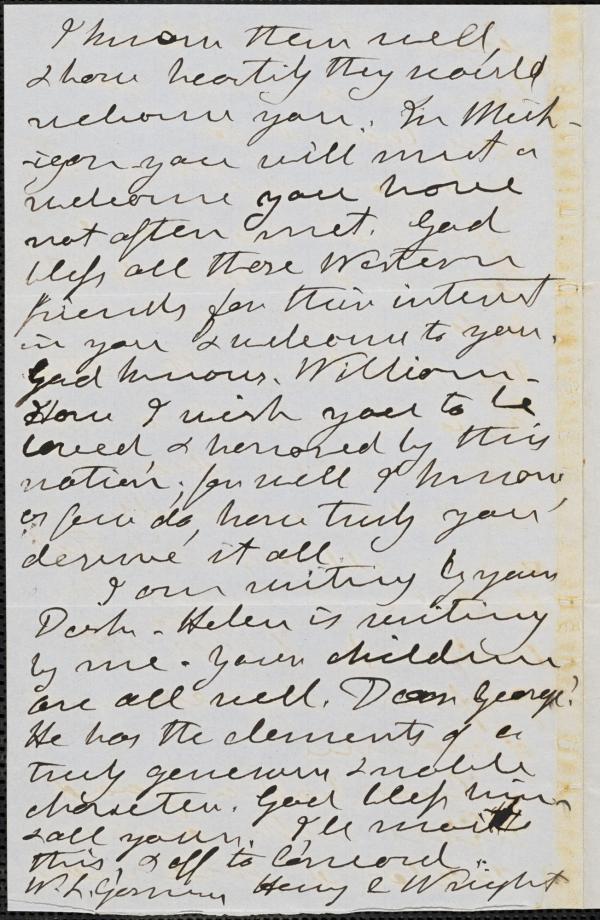 I know them well,
& how heartily they would
welcome you. In Mich-
-igan you will meet a
welcome you have
not often met. God
bless all those Western
friends for their interest
in you & welcome to you.
God knows, William -
How I wish you to be
loved & honored by this
nation; for well I know
as few do, how truly you
deserve it all.
I am writing by your
Desk - Helen is writing
by me - Your children
are all well. Dear George!
He has the elements of a
truly generous & noble
character. God bless him
& all yours. I'll mail
this, & off to Concord.
W. L. Garrison Henry C Wright